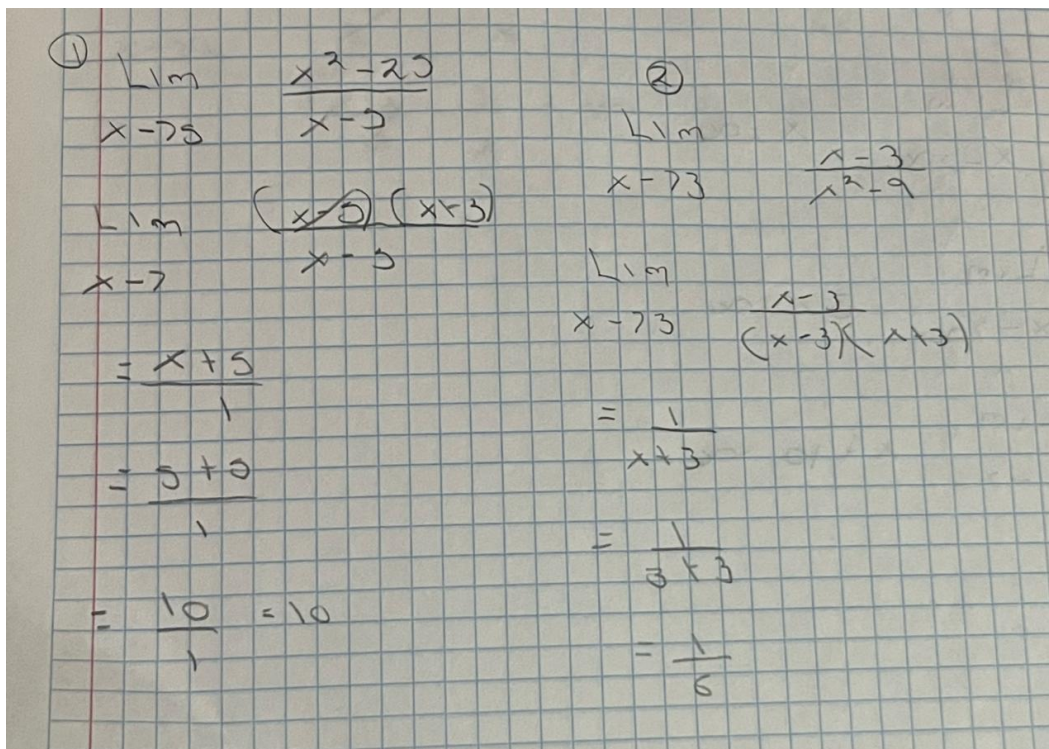 ①
Lim x²-25
x->5 x-5
Lim (x-5)(x+3)
x-> x-5
= x+5
1
= 5+5
1
= 10 = 10
1
②
Lim x-3
x->3 x²-9
Lim x-3
x->3 (x-3)(x+3)
= 1
x+3
= 1
3+3
= 1
6